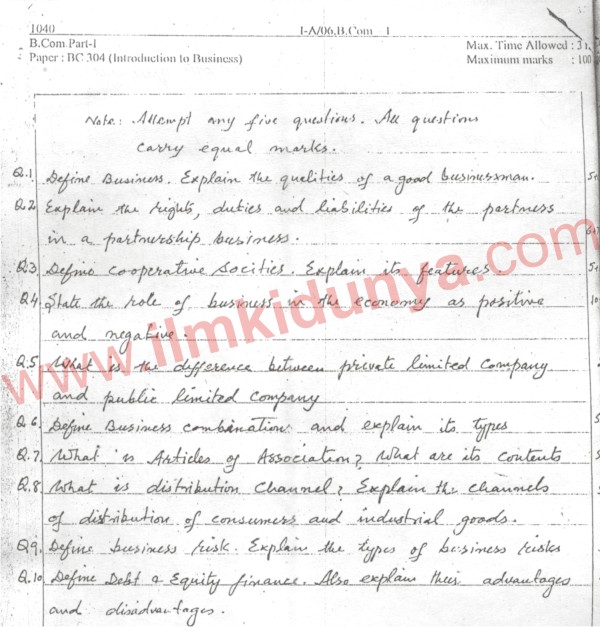 1040 I-A/06.B.Com 1
B.Com.Part-I Max. Time Allowed : 3
Paper : BC 304 (Introduction to Business) Maximum marks : 100
Note: Attempt any five questions. All questions
carry equal marks.
Q.1 Define Business. Explain the quelities of a good businessman.
Q.2 Explain the rights, duties and liabilities of the partners
in a partnership business.
Q.3 Define cooperative socities. Explain its features.
Q.4 State the role of business in the economy as positive
and negative.
Q.5 What is the difference between private limited company
and public limited company
Q.6 Define Business combination and explain its types
Q.7 What is Articles of Association? What are its contents
Q.8 What is distribution channel? Explain the channels
of distribution of consumers and industrial goods.
Q.9. Define business risk. Explain the types of business risks
Q.10 Define Debt & Equity finance. Also explain their advantages
and disadvantages.
www.ilmkidunya.com